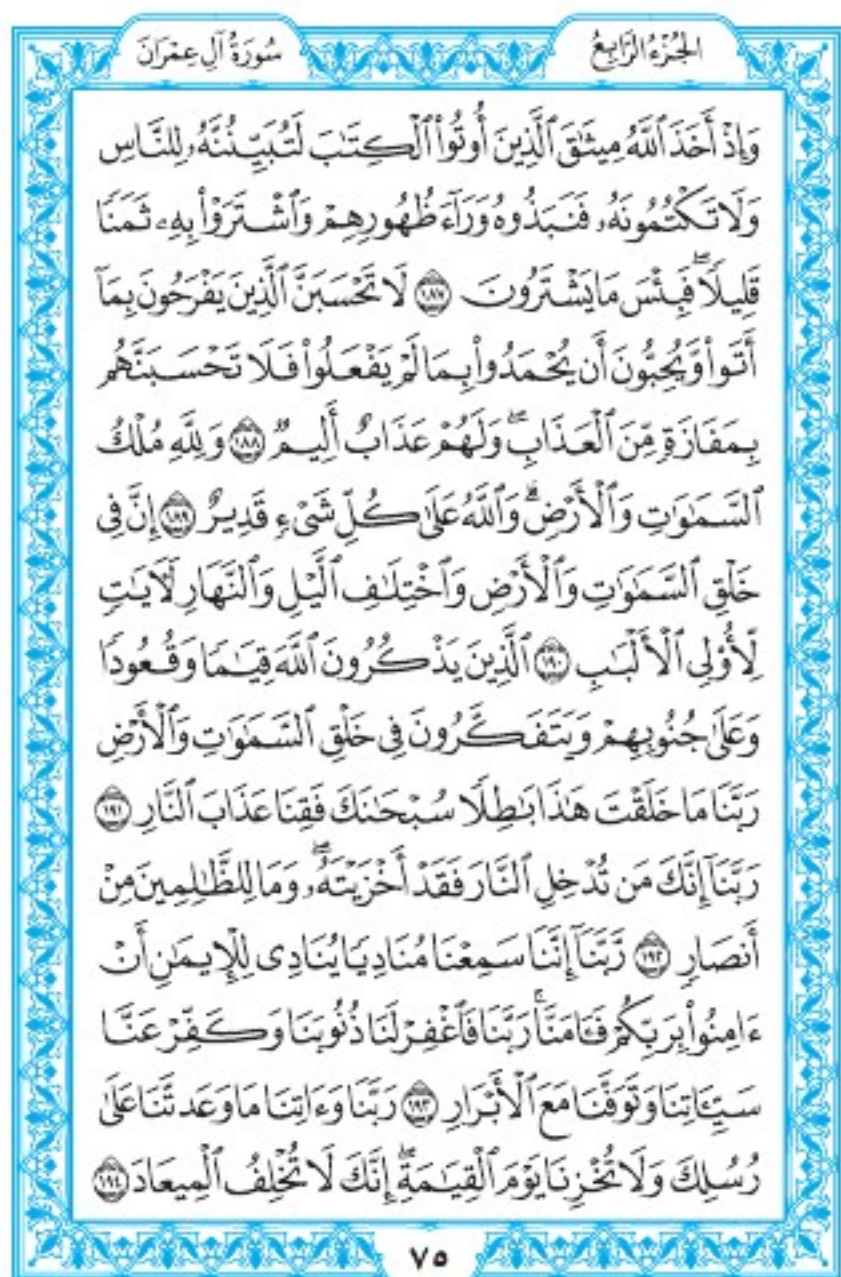 الجُزْءُ الرَّابِعُ
سُورَةُ آلِ عِمْرَانَ
وَإِذْ أَخَذَ ٱللَّهُ مِيثَٰقَ ٱلَّذِينَ أُوتُوا۟ ٱلْكِتَٰبَ لَتُبَيِّنُنَّهُۥ لِلنَّاسِ
وَلَا تَكْتُمُونَهُۥ فَنَبَذُوهُ وَرَآءَ ظُهُورِهِمْ وَٱشْتَرَوْا۟ بِهِۦ ثَمَنًا
قَلِيلًا ۖ فَبِئْسَ مَا يَشْتَرُونَ ١٨٧ لَا تَحْسَبَنَّ ٱلَّذِينَ يَفْرَحُونَ بِمَآ
أَتَوا۟ وَّيُحِبُّونَ أَن يُحْمَدُوا۟ بِمَا لَمْ يَفْعَلُوا۟ فَلَا تَحْسَبَنَّهُم
بِمَفَازَةٍ مِّنَ ٱلْعَذَابِ ۖ وَلَهُمْ عَذَابٌ أَلِيمٌ ١٨٨ وَلِلَّهِ مُلْكُ
ٱلسَّمَٰوَٰتِ وَٱلْأَرْضِ ۗ وَٱللَّهُ عَلَىٰ كُلِّ شَىْءٍ قَدِيرٌ ١٨٩ إِنَّ فِى
خَلْقِ ٱلسَّمَٰوَٰتِ وَٱلْأَرْضِ وَٱخْتِلَٰفِ ٱلَّيْلِ وَٱلنَّهَارِ لَءَايَٰتٍ
لِّأُو۟لِى ٱلْأَلْبَٰبِ ١٩٠ ٱلَّذِينَ يَذْكُرُونَ ٱللَّهَ قِيَٰمًا وَقُعُودًا
وَعَلَىٰ جُنُوبِهِمْ وَيَتَفَكَّرُونَ فِى خَلْقِ ٱلسَّمَٰوَٰتِ وَٱلْأَرْضِ
رَبَّنَا مَا خَلَقْتَ هَٰذَا بَٰطِلًا سُبْحَٰنَكَ فَقِنَا عَذَابَ ٱلنَّارِ ١٩١
رَبَّنَآ إِنَّكَ مَن تُدْخِلِ ٱلنَّارَ فَقَدْ أَخْزَيْتَهُۥ ۖ وَمَا لِلظَّٰلِمِينَ مِنْ
أَنصَارٍ ١٩٢ رَّبَّنَآ إِنَّنَا سَمِعْنَا مُنَادِيًا يُنَادِى لِلْإِيمَٰنِ أَنْ
ءَامِنُوا۟ بِرَبِّكُمْ فَـَٔامَنَّا ۚ رَبَّنَا فَٱغْفِرْ لَنَا ذُنُوبَنَا وَكَفِّرْ عَنَّا
سَيِّـَٔاتِنَا وَتَوَفَّنَا مَعَ ٱلْأَبْرَارِ ١٩٣ رَبَّنَا وَءَاتِنَا مَا وَعَدتَّنَا عَلَىٰ
رُسُلِكَ وَلَا تُخْزِنَا يَوْمَ ٱلْقِيَٰمَةِ ۖ إِنَّكَ لَا تُخْلِفُ ٱلْمِيعَادَ ١٩٤
٧٥